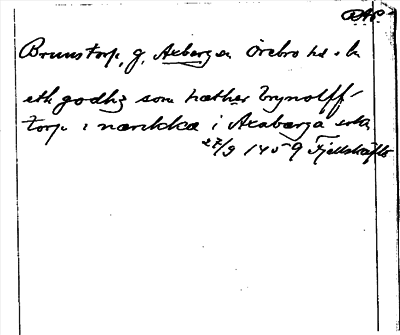 DAP.
Brunstorp, g, Axbergs sn Örebro hd o l
eth godhz som hæther brynolff-
torp i nærikkæ i Axabærga sokn
27/9 1459 Fjellskäfte